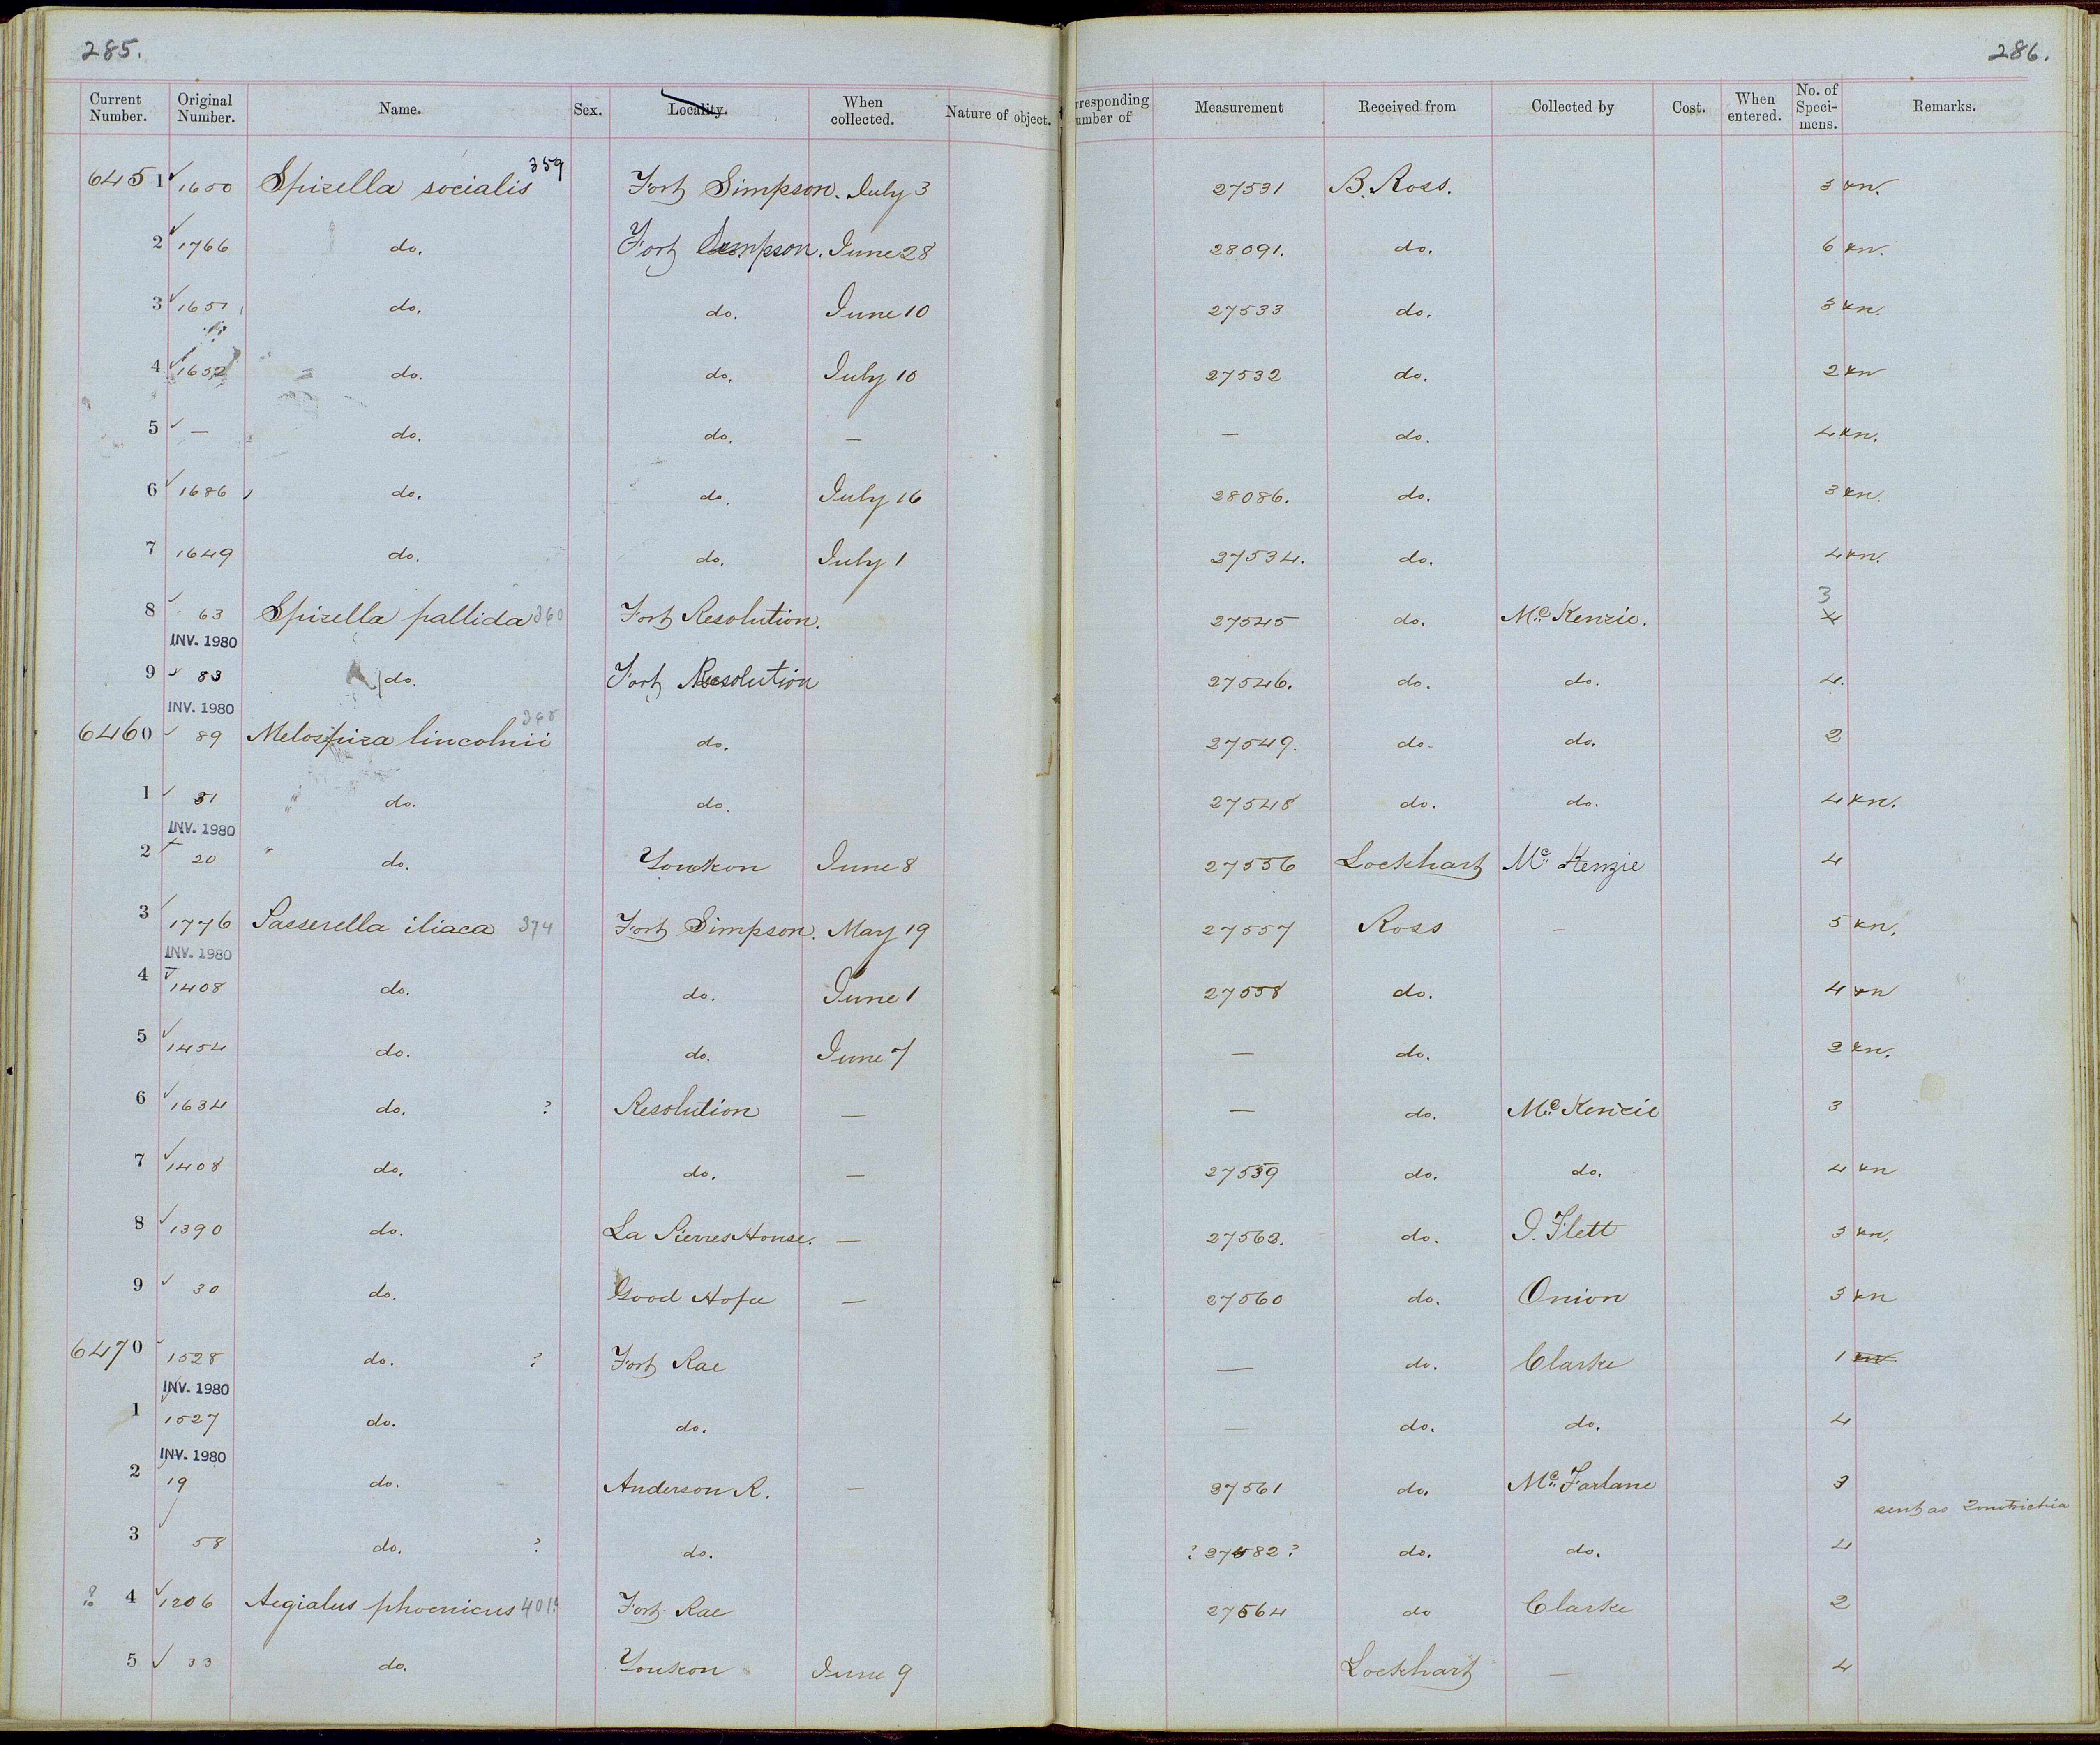 285.
286.
Current Number. Original Number. Name. Sex. Locality. When collected. Nature of object. rresponding umber of Measurement Received from Collected by Cost. When entered. No. of Speci- mens. Remarks.
6451 1650 Spizella socialis 359 Fort Simpson. July 3 27531 B. Ross. 3 kn.
2 1766 do. Fort Simpson. June 28 28091. do. 6 kn.
3 1651 do. do. June 10 27533 do. 3 kn.
4 1652 do. do. July 10 27532 do. 2 kn
5 — do. do. — — do. 4 kn.
6 1686 do. do. July 16 28086. do. 3 kn.
7 1649 do. do. July 1 27534. do. 4 kn.
3
8 63 Spizella pallida 360 Fort Resolution. 27545 do. Mc Kenzie. 4
INV. 1980
9 83 do. Fort Resolution 27546. do. do. 4.
INV. 1980
6460 89 Melospiza lincolnii 368 do. 27549. do. do. 2
1 31 do. do. 27548 do. do. 4 kn.
INV. 1980
2 20 do. Youkon June 8 27556 Lockhart Mc Kenzie 4
3 1776 Passerella iliaca 374 Fort Simpson. May 19 27557 Ross — 5 kn.
INV. 1980
4 1408 do. do. June 1 27558 do. 4 kn
5 1454 do. do. June 7 — do. 2 kn.
6 1634 do. ? Resolution — — do. Mc Kenzie 3
7 1408 do. do. — 27559 do. do. 4 kn
8 1390 do. La Pierres House. — 27562. do. J. Flett 3 kn.
9 30 do. Good Hope — 27560 do. Onion 3 kn
6470 1528 do. ? Fort Rae — do. Clarke 1 kn
INV. 1980
1 1527 do. do. — do. do. 4
INV. 1980
2 19 do. Anderson R. — 27561 do. Mc Farlane 3
sent as Zonotrichia
3 58 do. ? do. ? 27582 ? do. do. 4
? 4 1206 Aegialus phoenicus 401? Fort Rae 27564 do Clarke 2
5 33 do. Youkon June 9 Lockhart — 4